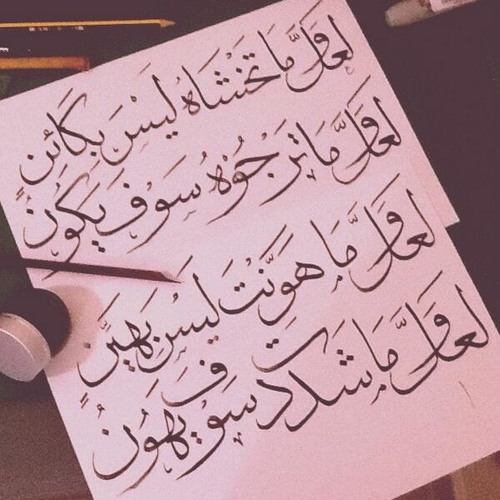 لعلَّ مَا تَخْشَاهُ لَيْسَ بِكَائِنٍ
لعلَّ مَا تَرْجُوْهُ سَوْفَ يَكُونُ
لعلَّ مَا هَوَّنْتَ لَيْسَ بَهِيِّنٍ
لعلَّ مَا شَدَدتَ سَوْفَ يَهُونُ